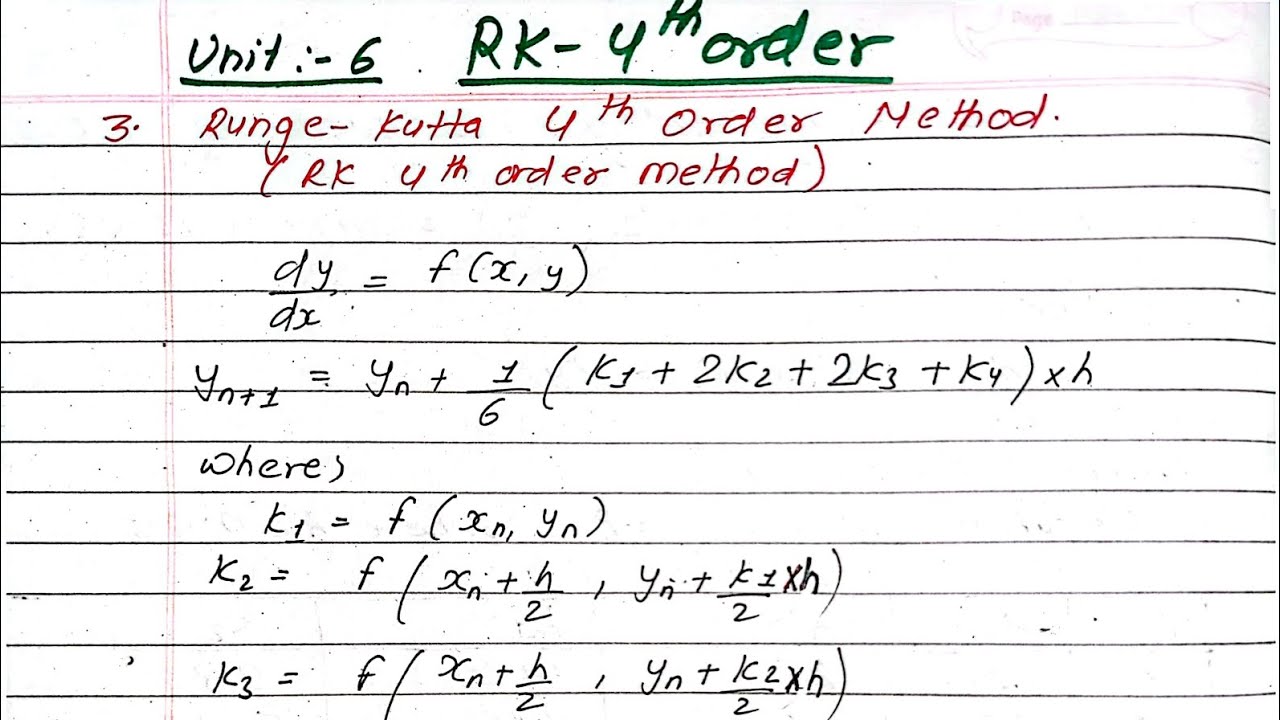 Unit:- 6 RK- 4th order
3. Runge- Kutta 4th Order Method.
(RK 4th order method)
dy/dx = f(x, y)
yn+1 = yn + 1/6 (K1 + 2K2 + 2K3 + K4) × h
where,
K1 = f(xn, yn)
K2 = f(xn + h/2, yn + K1/2 × h)
K3 = f(xn + h/2, yn + K2/2 × h)